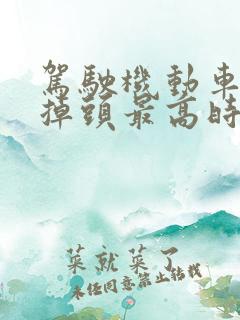 駕駛機動車
掉頭最高時
菜就菜了
未任同意禁止結載